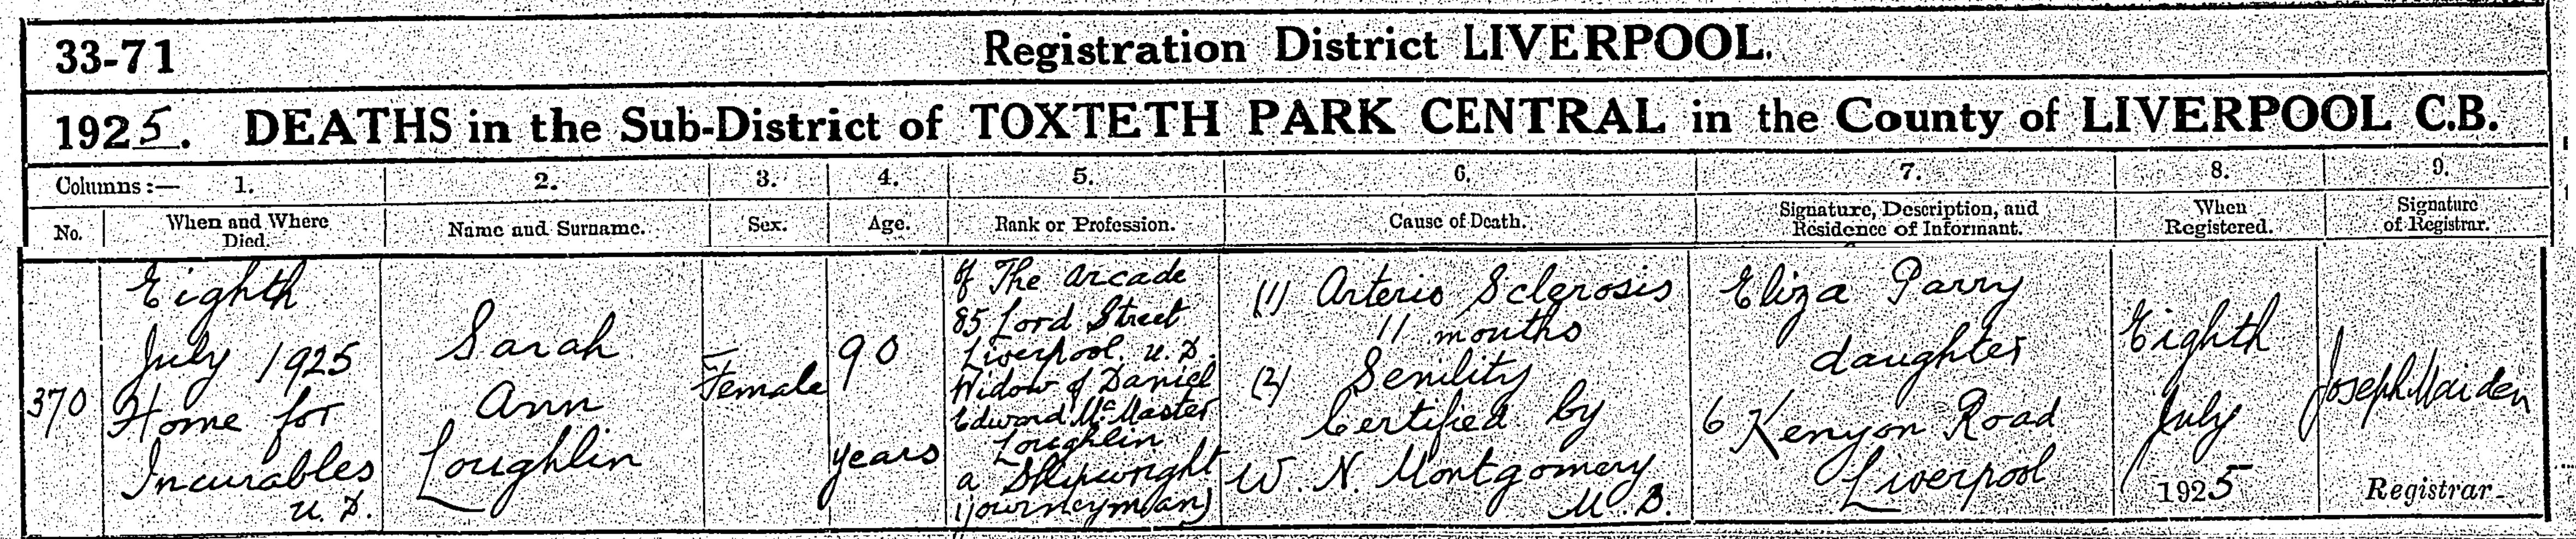 33-71
Registration District LIVERPOOL.
1925. DEATHS in the Sub-District of TOXTETH PARK CENTRAL in the County of LIVERPOOL C.B.
Columns :— 1. 2. 3. 4. 5. 6. 7. 8. 9.
No.
When and Where
Died.
Name and Surname.
Sex.
Age.
Rank or Profession.
Cause of Death.
Signature, Description, and
Residence of Informant.
When
Registered.
Signature
of Registrar.
370
Eighth
July 1925
Home for
Incurables
U. D.
Sarah
Ann
Loughlin
Female
90
years
of The Arcade
85 Lord Street
Liverpool. U. D.
Widow of Daniel
Edward McMaster
Loughlin
a Shipwright
(journeyman)
(1) Arterio Sclerosis
11 months
(2) Senility
Certified by
W. N. Montgomery
M. B.
Eliza Parry
daughter
6 Kenyon Road
Liverpool
Eighth
July
1925
Joseph Maiden
Registrar.